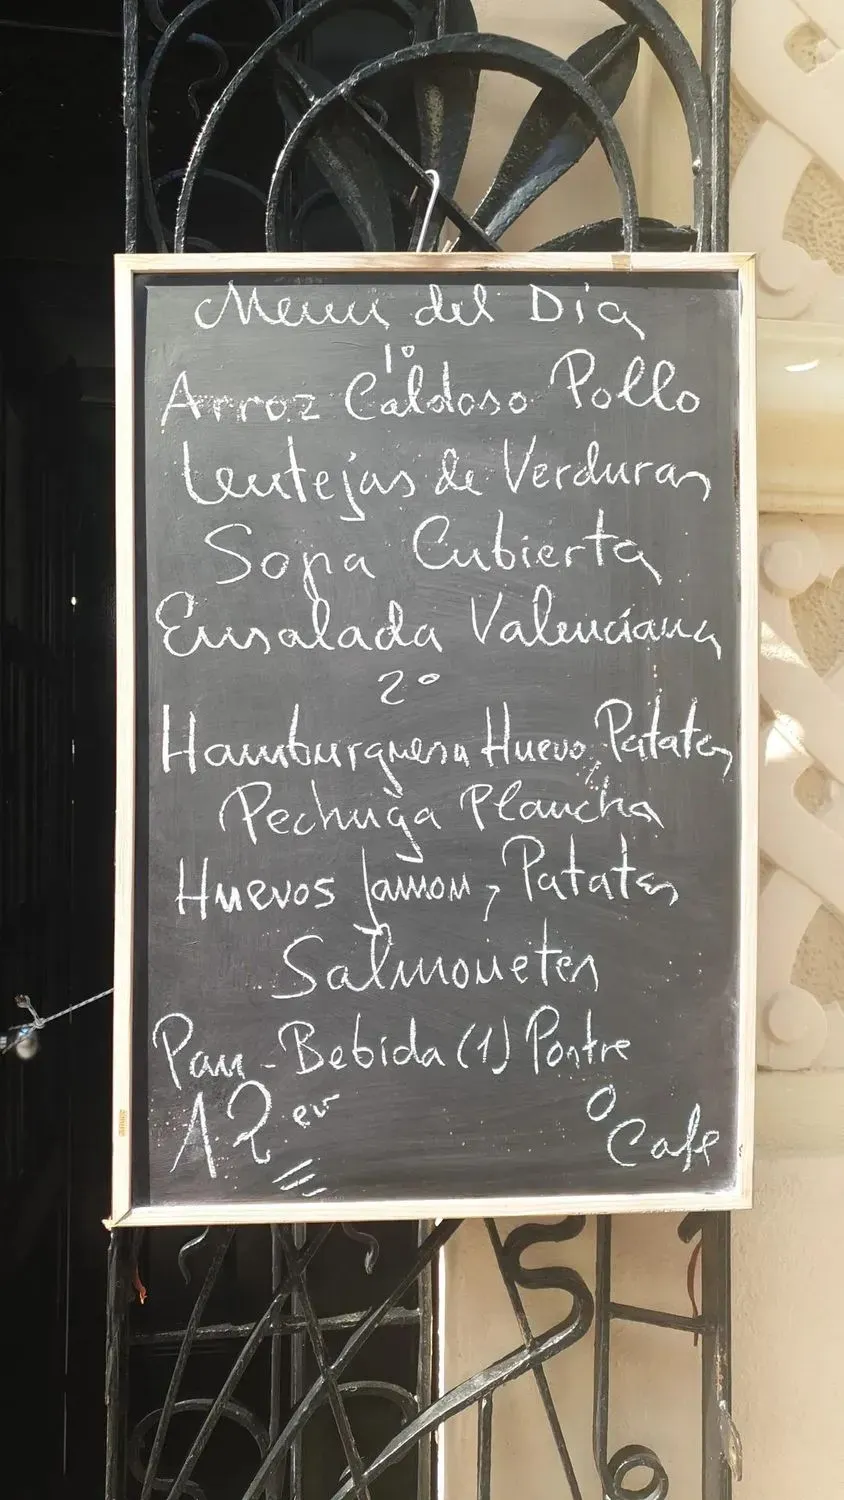 Menu del Dia
1º
Arroz Caldoso Pollo
Lentejas de Verduras
Sopa Cubierta
Ensalada Valenciana
2º
Hamburguesa Huevo, Patatas
Pechuga Plancha
Huevos Jamon, Patatas
Salmonetes
Pan - Bebida (1) Postre
12 eur o Cafe